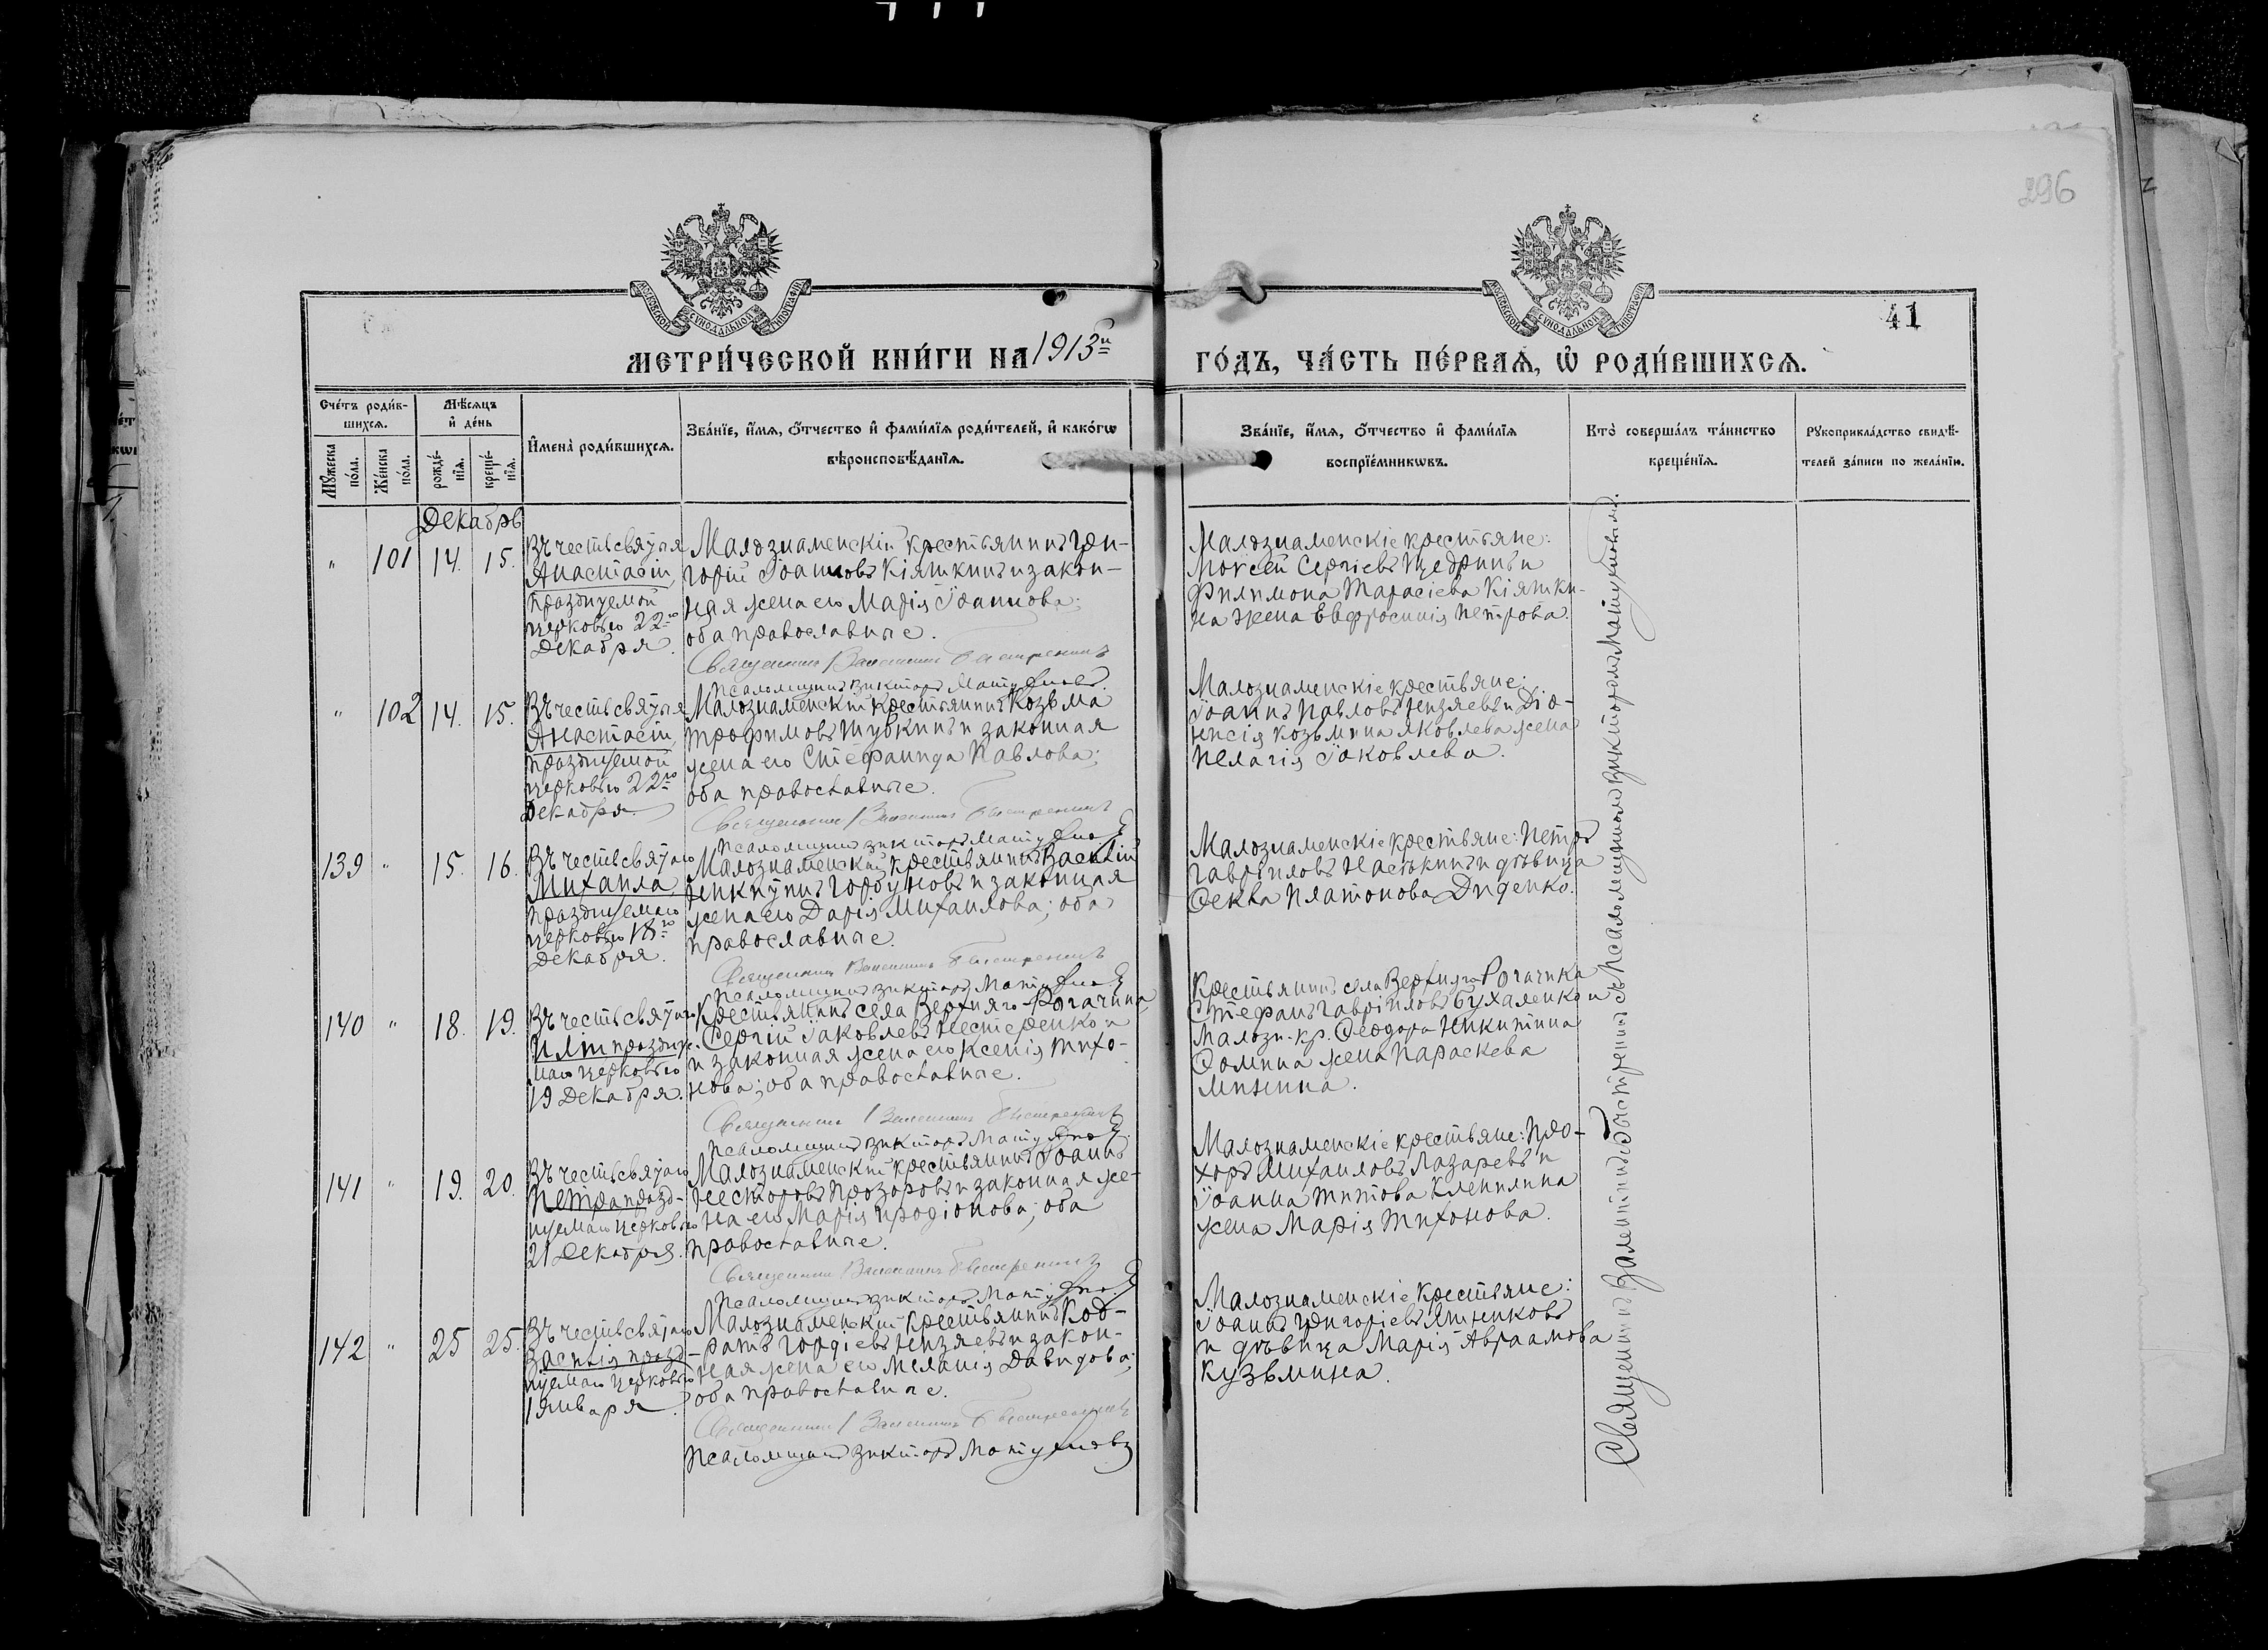 296
МОСКОВСКОЙ СѴНОДАЛЬНОЙ ТИПОГРАФІИ
МОСКОВСКОЙ СѴНОДАЛЬНОЙ ТИПОГРАФІИ
41
МЕТРИ́ЧЕСКОЙ КНИ́ГИ НА 1913й ГО́ДЪ, ЧА́СТЬ ПЕ́РВАѦ, Ѡ҆ РОДИ́ВШИХСѦ.
Сче́тъ роди́в-
шихсѧ.
Мꙋ́жеска по́ла.
Же́нска по́ла.
Мѣ́сѧцъ
и҆ де́нь
рожде́-
нїѧ.
креще́-
нїѧ.
И҆мена̀ роди́вшихсѧ.
Зва́нїе, и҆́мѧ, ѻ҆́тчество и҆ фами́лїѧ роди́телей, и҆ како́гѡ
вѣроисповѣ́данїѧ.
Зва́нїе, и҆́мѧ, ѻ҆́тчество и҆ фами́лїѧ
воспрїе́мникѡвъ.
Кто̀ соверша́лъ та́инство
креще́нїѧ.
Рꙋкоприкла́дство свидѣ́-
телей за́писи по жела́нїю.
Декабрь
" 101 14. 15.
Въ честь святыя
Анастасіи,
празднуемой
церковью 22го
Декабря.
Малознаменскій крестьянинъ Гри-
горій Іоанновъ Кіяшкинъ и закон-
ная жена его Марія Іоаннова;
оба православные.
Священникъ Валентинъ Быстренинъ
Псаломщикъ Викторъ Матушновъ
Малознаменскіе крестьяне:
Моѵсей Сергіевъ Щедринъ и
Филимона Тарасіева Кіяшки-
на жена Евфросинія Петрова.
" 102 14. 15.
Въ честь святыя
Анастасіи,
празднуемой
церковью 22го
Декабря.
Малознаменскій крестьянинъ Козьма
Трофимовъ Шубкинъ и законная
жена его Стефанида Павлова;
оба православные.
Священникъ Валентинъ Быстренинъ
Псаломщикъ Викторъ Матушновъ
Малознаменскіе крестьяне:
Іоаннъ Павловъ Низяевъ и Діо-
нисія Козьмина Яковлева жена
Пелагія Іаковлева.
139 " 15. 16.
Въ честь святаго
Михаила
празднуемаго
церковью 18го
Декабря.
Малознаменскій крестьянинъ Василій
Никитинъ Горбуновъ и законная
жена его Дарія Михаилова; оба
православные.
Священникъ Валентинъ Быстренинъ
Псаломщикъ Викторъ Матушновъ
Малознаменскіе крестьяне: Петръ
Гавріиловъ Насѣкинъ и дѣвица
Ѳекла Платонова Диденко.
140 " 18. 19.
Въ честь святаго
Иліи праздну-
маго церковью
19 Декабря.
Крестьянинъ села Верхняго-Рогачика
Сергій Іаковлевъ Нестеренко и
и законная жена его Ксенія Тихо-
нова; оба православные.
Священникъ Валентинъ Быстренинъ
Псаломщикъ Викторъ Матушновъ
Крестьянинъ села Верхняго-Рогачика
Стефанъ Гавріиловъ Бухаленко и
Малозн. кр. Ѳеодора Никитина
Ѳомина жена Параскева
Минина.
141 " 19. 20.
Въ честь святаго
Петра празд-
нуемаго церковью
21 Декабря.
Малознаменскій крестьянинъ Іоаннъ
Несторовъ Прозоровъ и законная же-
на его Марія Иродіонова; оба
православные.
Священникъ Валентинъ Быстренинъ
Псаломщикъ Викторъ Матушновъ
Малознаменскіе крестьяне: Про-
хоръ Михаиловъ Лазаревъ и
Іоанна Титова Кленилина
жена Марія Тихонова.
142 " 25 25.
Въ честь святаго
Василія празд-
нуемаго церковью
1 Января.
Малознаменскій крестьянинъ Код-
ратъ Гордіевъ Низяевъ и закон-
ная жена его Меланія Давидова;
оба православные.
Священникъ Валентинъ Быстренинъ
Псаломщикъ Викторъ Матушновъ
Малознаменскіе крестьяне:
Іоаннъ Григоріевъ
и дѣвица Марія Авраамова
Кузьмина.
Священникъ Валентинъ Быстренинъ съ Псаломщикомъ Викторомъ Матушновымъ.